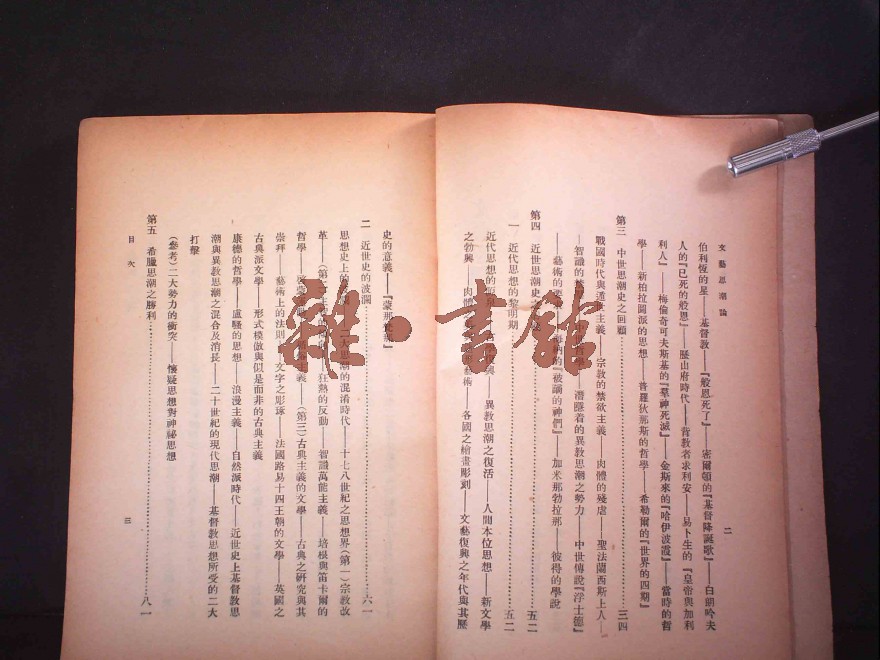 文藝思潮論
二
伯利恆的星——基督教——『般恩死了』——密爾頓的『基督降誕歌』——白朗吟夫
人的『已死的般恩』——歷山府時代——背教者求利安——易卜生的『皇帝與加利
利人』——梅倫奇可夫斯基的『羣神死滅』——金斯來的『哈伊波霞』——當時的哲
學——新柏拉圖派的思想——普羅狄那斯的哲學——希勒爾的『世界的四期』
第三 中世思潮史之回顧……三四
戰國時代與遁世主義——宗教的禁欲主義——肉體的殘虐——聖法蘭西斯上人——
智識的——潛隱着的異教思潮之勢力——中世傳說『浮士德』
——藝術的——的『被謫的神們』——加米那勃拉那——彼得的學說
第四 近世思潮史之……五二
一 近代思想的黎明期……五二
近代思想的——異教思潮之復活——人間本位思想——新文學
之勃興——肉體——形藝術——各國之繪畫彫刻——文藝復興之年代與其歷
史的意義——『蒙那
二 近世史的波瀾……六一
思想史上的——二大思潮的混淆時代——十七八世紀之思想界(第一)宗教改
革——(第二)——狂熱的反動——智識萬能主義——培根與笛卡爾的
哲學——啓蒙——主義——(第三)古典主義的文學——古典之硏究與其
崇拜——藝術上的法則——文字之彫琢——法國路易十四王朝的文學——英國之
古典派文學——形式模倣與似是而非的古典主義
康德的哲學——盧騷的思想——浪漫主義——自然派時代——近世史上基督教思
潮與異教思潮之混合及消長——二十世紀的現代思潮——基督教思想所受的二大
打擊
(參考)二大勢力的衝突——懷疑思想對神祕思想
第五 希臘思潮之勝利……八一
目次
三
雜·書館